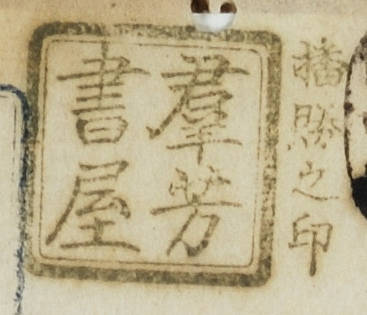 播勝之印
羣芳
書屋